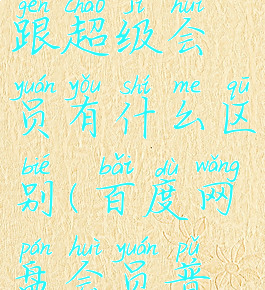 gēn chāo jí huì
跟超级会
yuán yǒu shí me qū
员有什么区
bié bǎi dù wǎng
别(百度网
pán huì yuán pǔ
盘会员普